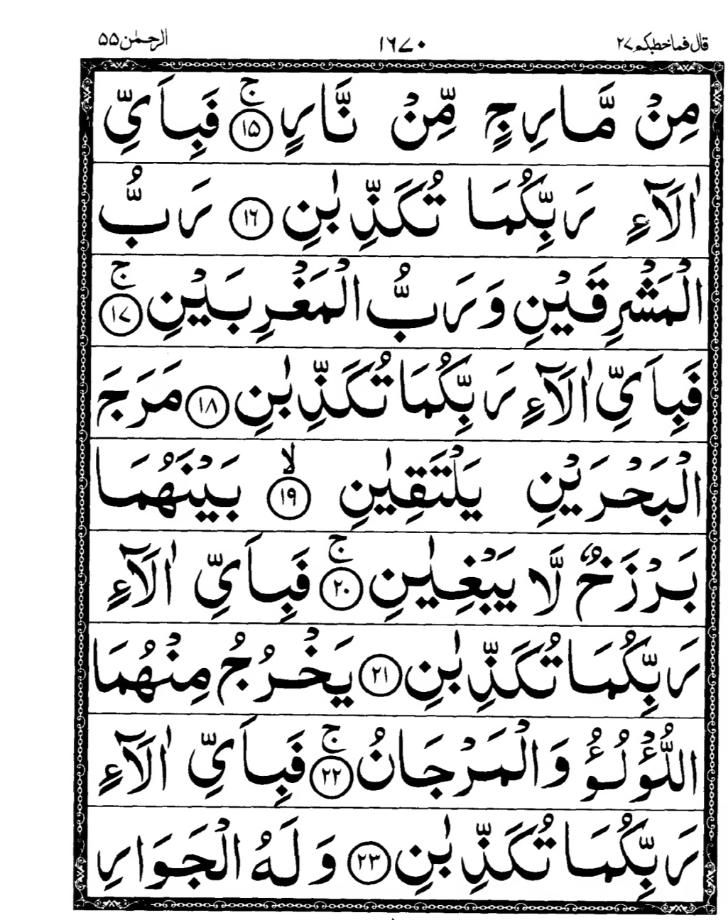 قال فما خطبکم ۲۷ ۱۶۷۰ الرحمٰن ۵۵
مِنۡ مَّارِجٍ مِّنۡ نَّارٍ ۚ‏ ﴿۱۵﴾ فَبِاَىِّ
اٰلَاۤءِ رَبِّكُمَا تُكَذِّبٰنِ ﴿۱۶﴾ رَبُّ
الۡمَشۡرِقَيۡنِ وَ رَبُّ الۡمَغۡرِبَيۡنِ ۚ‏ ﴿۱۷﴾
فَبِاَىِّ اٰلَاۤءِ رَبِّكُمَا تُكَذِّبٰنِ ﴿۱۸﴾ مَرَجَ
الۡبَحۡرَيۡنِ يَلۡتَقِيٰنِ ۙ‏ ﴿۱۹﴾ بَيۡنَهُمَا
بَرۡزَخٌ لَّا يَبۡغِيٰنِ ۚ‏ ﴿۲۰﴾ فَبِاَىِّ اٰلَاۤءِ
رَبِّكُمَا تُكَذِّبٰنِ ﴿۲۱﴾ يَخۡرُجُ مِنۡهُمَا
اللُّؤۡلُؤُ وَالۡمَرۡجَانُ ۚ‏ ﴿۲۲﴾ فَبِاَىِّ اٰلَاۤءِ
رَبِّكُمَا تُكَذِّبٰنِ ﴿۲۳﴾ وَلَهُ الۡجَوَارِ